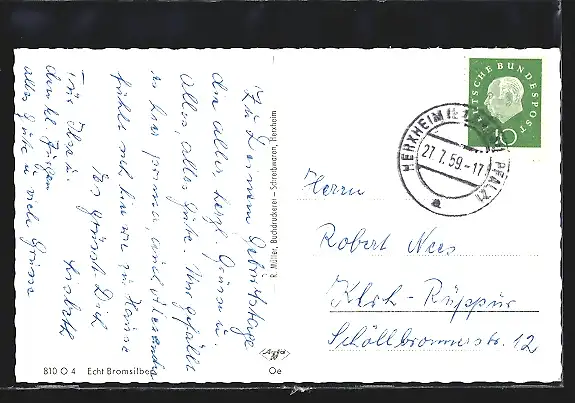 Zu Deinem Geburtstage
Dir alles, herzl. Grüsse u.
alles, alles Gute. Uns gefällt
es hier prima, und Alexandra
fühlt sich hier wie zu Hause
Es grüsst Dich
Lisbeth
Für Ilse u.
alles Gute u. viele Grüsse
R. Müller, Buchdruckerei - Schreibwaren, Herxheim
DEUTSCHE BUNDESPOST
10
HERXHEIM
PFALZ)
27.7.59.-17
a
Herrn
Robert Nees
Klrh-Rüppur
Schöllbronnerstr. 12
810 O 4 Echt Bromsilber
Oe